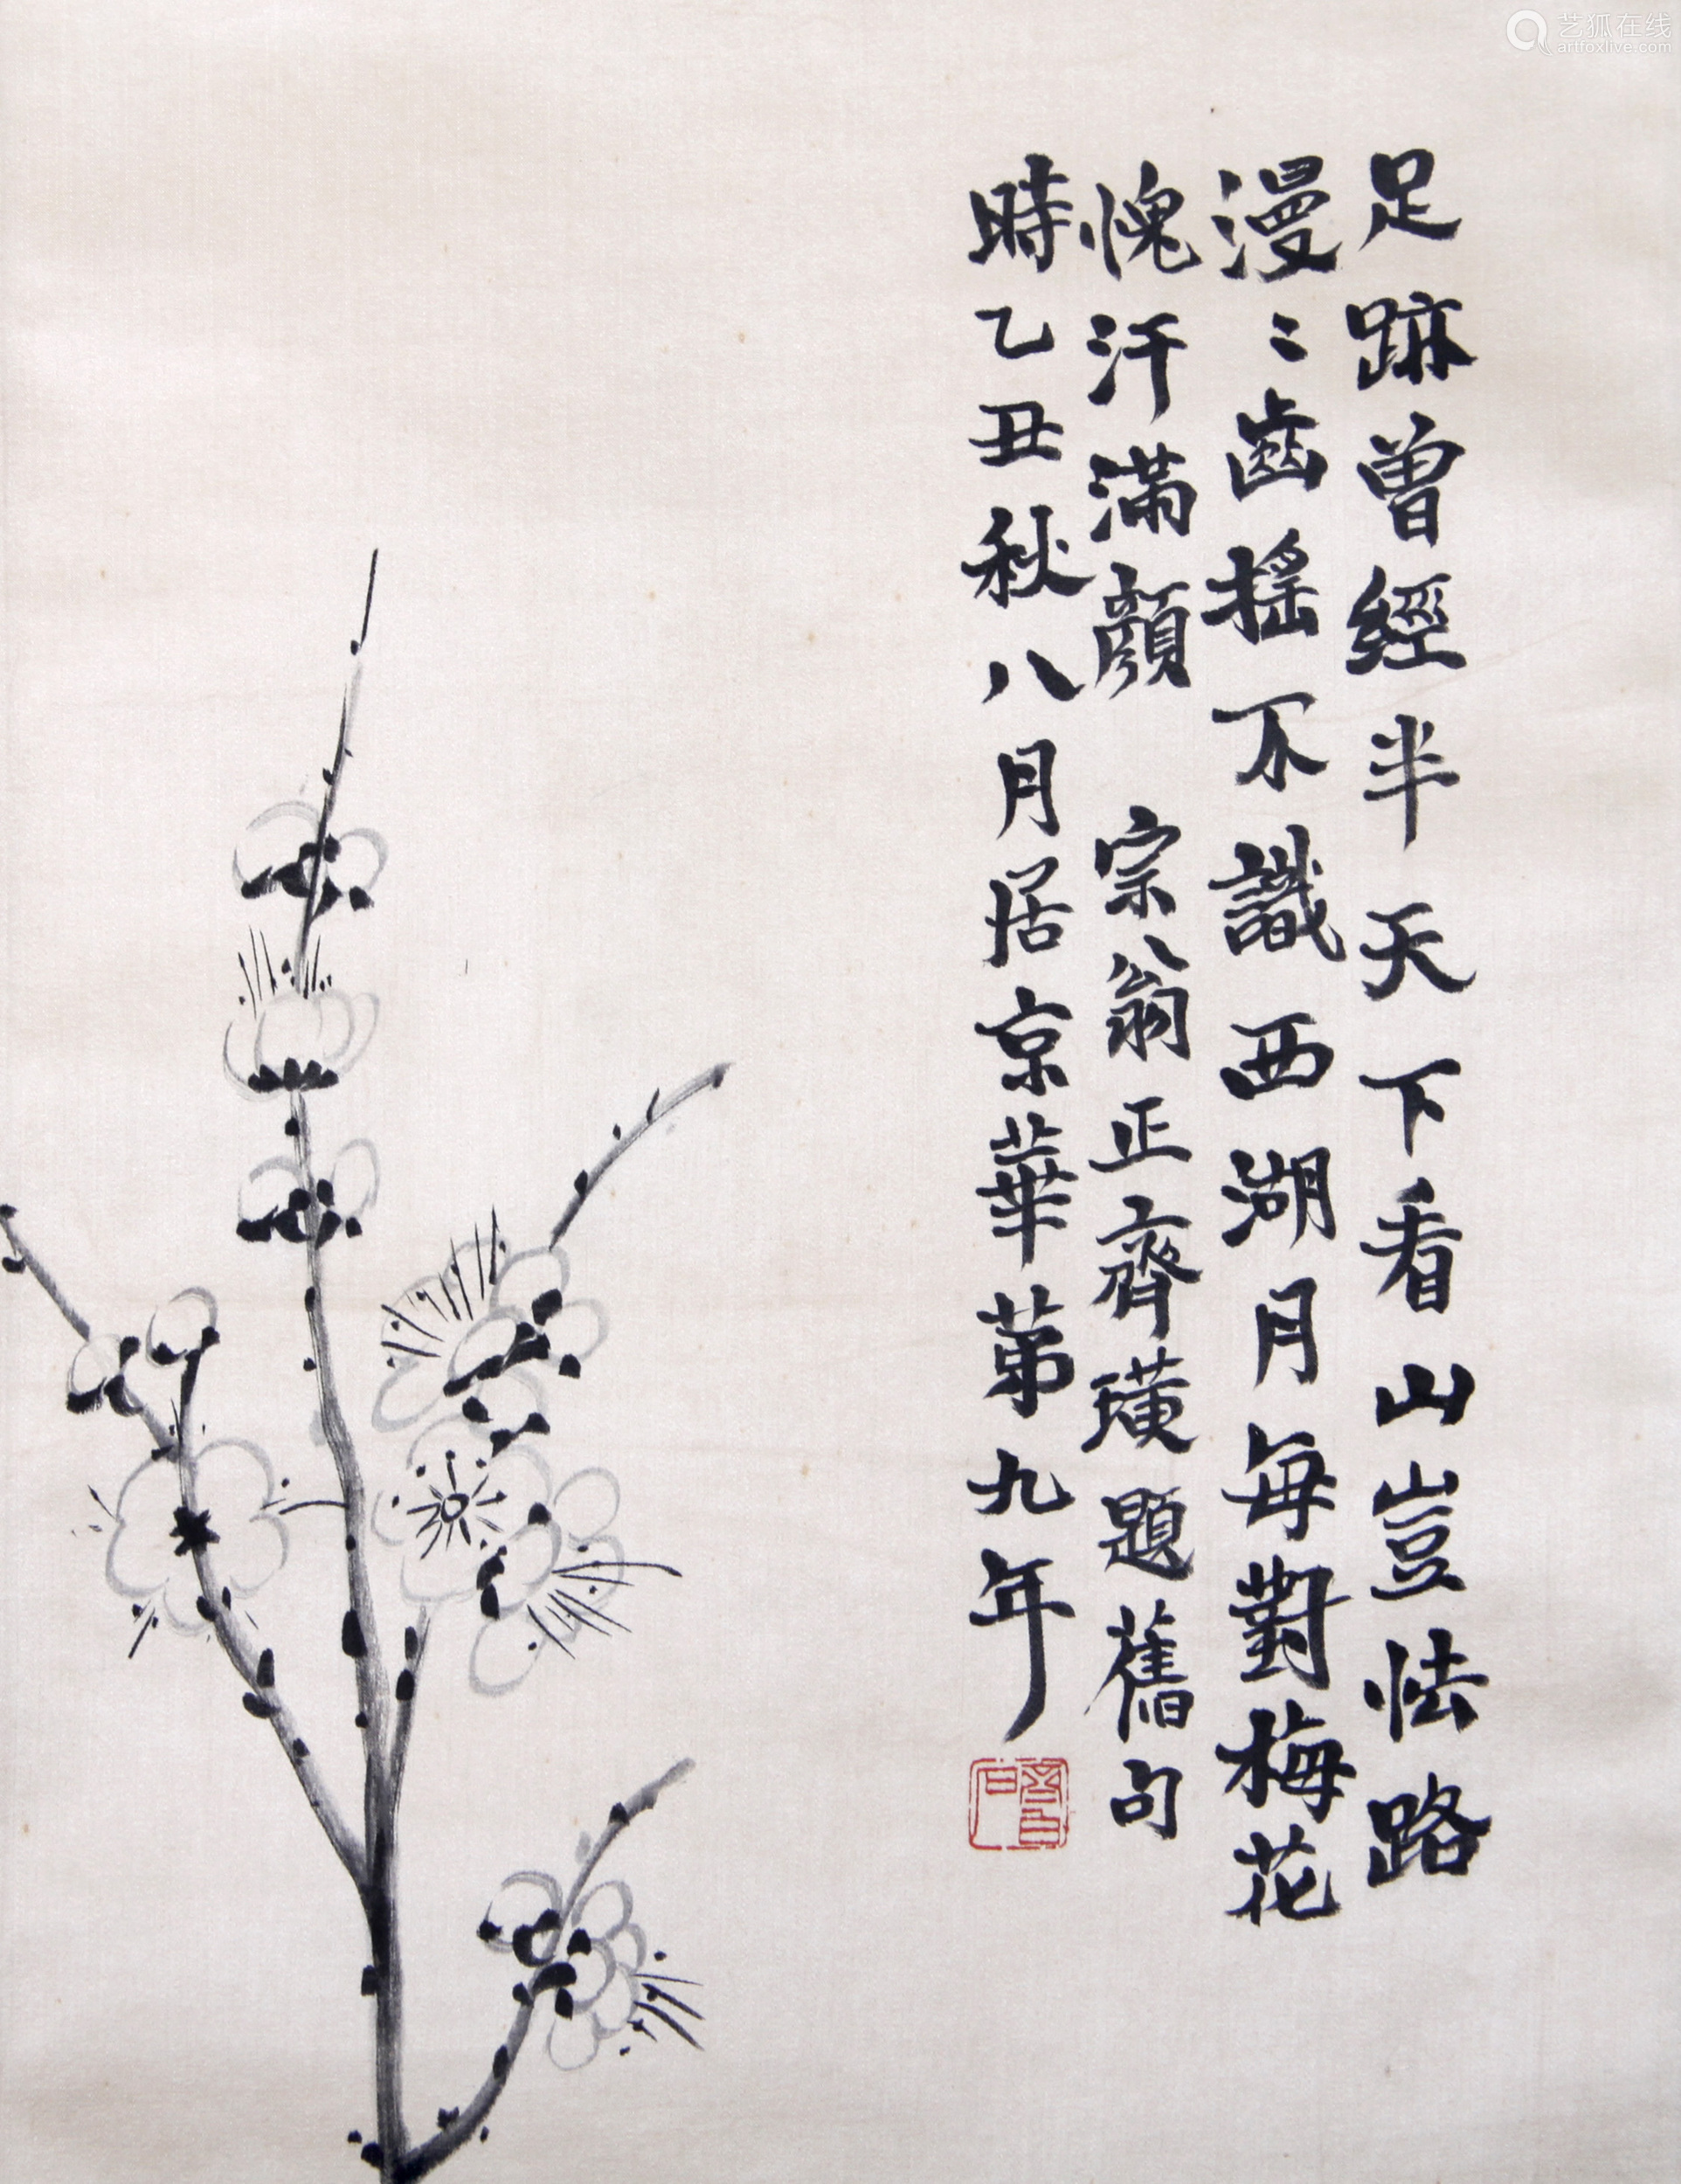 足跡曾經半天下看山豈怯路
漫〻齒搖不識西湖月每對梅花
愧汗滿顏 宗翁正齊璜題舊句
時乙丑秋八月居京華第九年
艺狐在线
artfoxlive.com